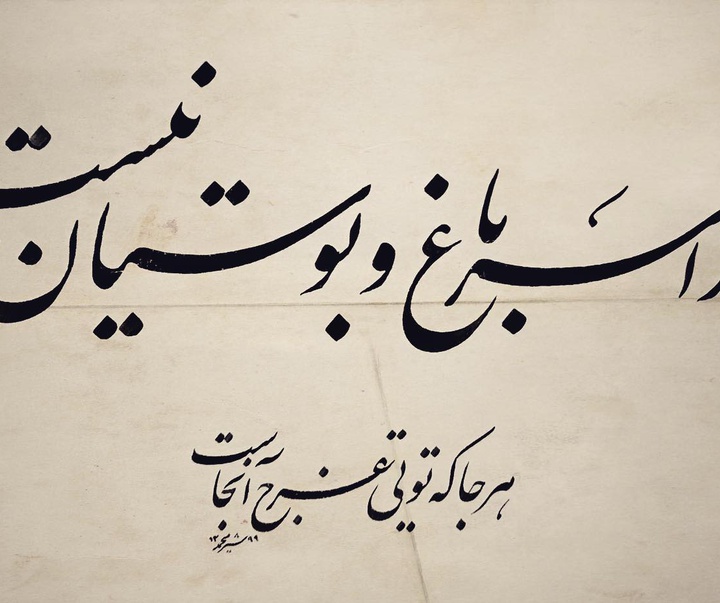 را سر باغ و بوستان نیست
هر جا که تویی تفرج آنجاست